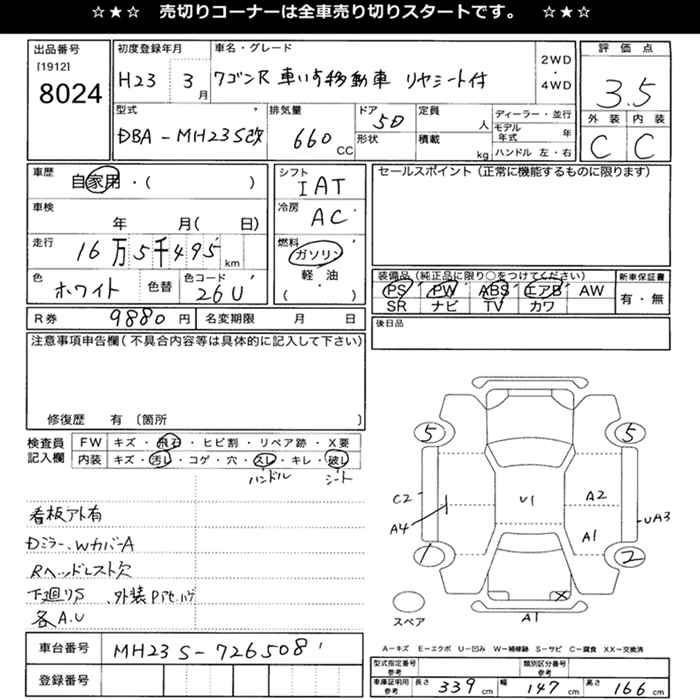 ☆★☆ 売切りコーナーは全車売り切りスタートです。 ☆★☆
出品番号
[1912]
8024
初度登録年月
H23 3月
車名・グレード
ワゴンR 車いす移動車 リヤシート付
2WD
・
4WD
評価点
3.5
外装 内装
C C
型式
DBA-MH23S改
排気量
660 CC
ドア
5D
形状
定員
人
積載
kg
ディーラー・並行
モデル年式 年
ハンドル 左・右
車歴
自家用・( )
車検
年 月( 日)
走行
16万5千495km
色
ホワイト
色替
色コード
26U
シフト
IAT
冷房
AC
燃料
ガソリン
軽・油
( )
セールスポイント (正常に機能するものに限ります)
装備品 (純正品に限り○をつけてください)
PS PW ABS エアB AW
SR ナビ TV カワ
新車保証書
有・無
R券 9880円
名変期限 月 日
後日品
注意事項申告欄 (不具合内容等は具体的に記入して下さい)
修復歴 有 〔箇所 〕
検査員
記入欄
FW キズ・飛石・ヒビ割・リペア跡・X要
内装 キズ・汚レ・コゲ・穴・スレ・キレ・破レ
ハンドル シート
看板アト有
Dミラー、WカバーA
Rヘッドレスト欠
下廻りS 、外装
各A.U
5 5
C2
A4
U1
A2
A1
UA3
1 2
X
A1
スペア
A-キズ E-エクボ U-凹み W-補修跡 S-サビ C-腐食 XX-交換済
車台番号 MH23S-726508
登録番号
型式指定番号 参考
類別区分番号 参考
車庫証明用 参考
長さ 339cm 幅 147cm 高さ 166cm